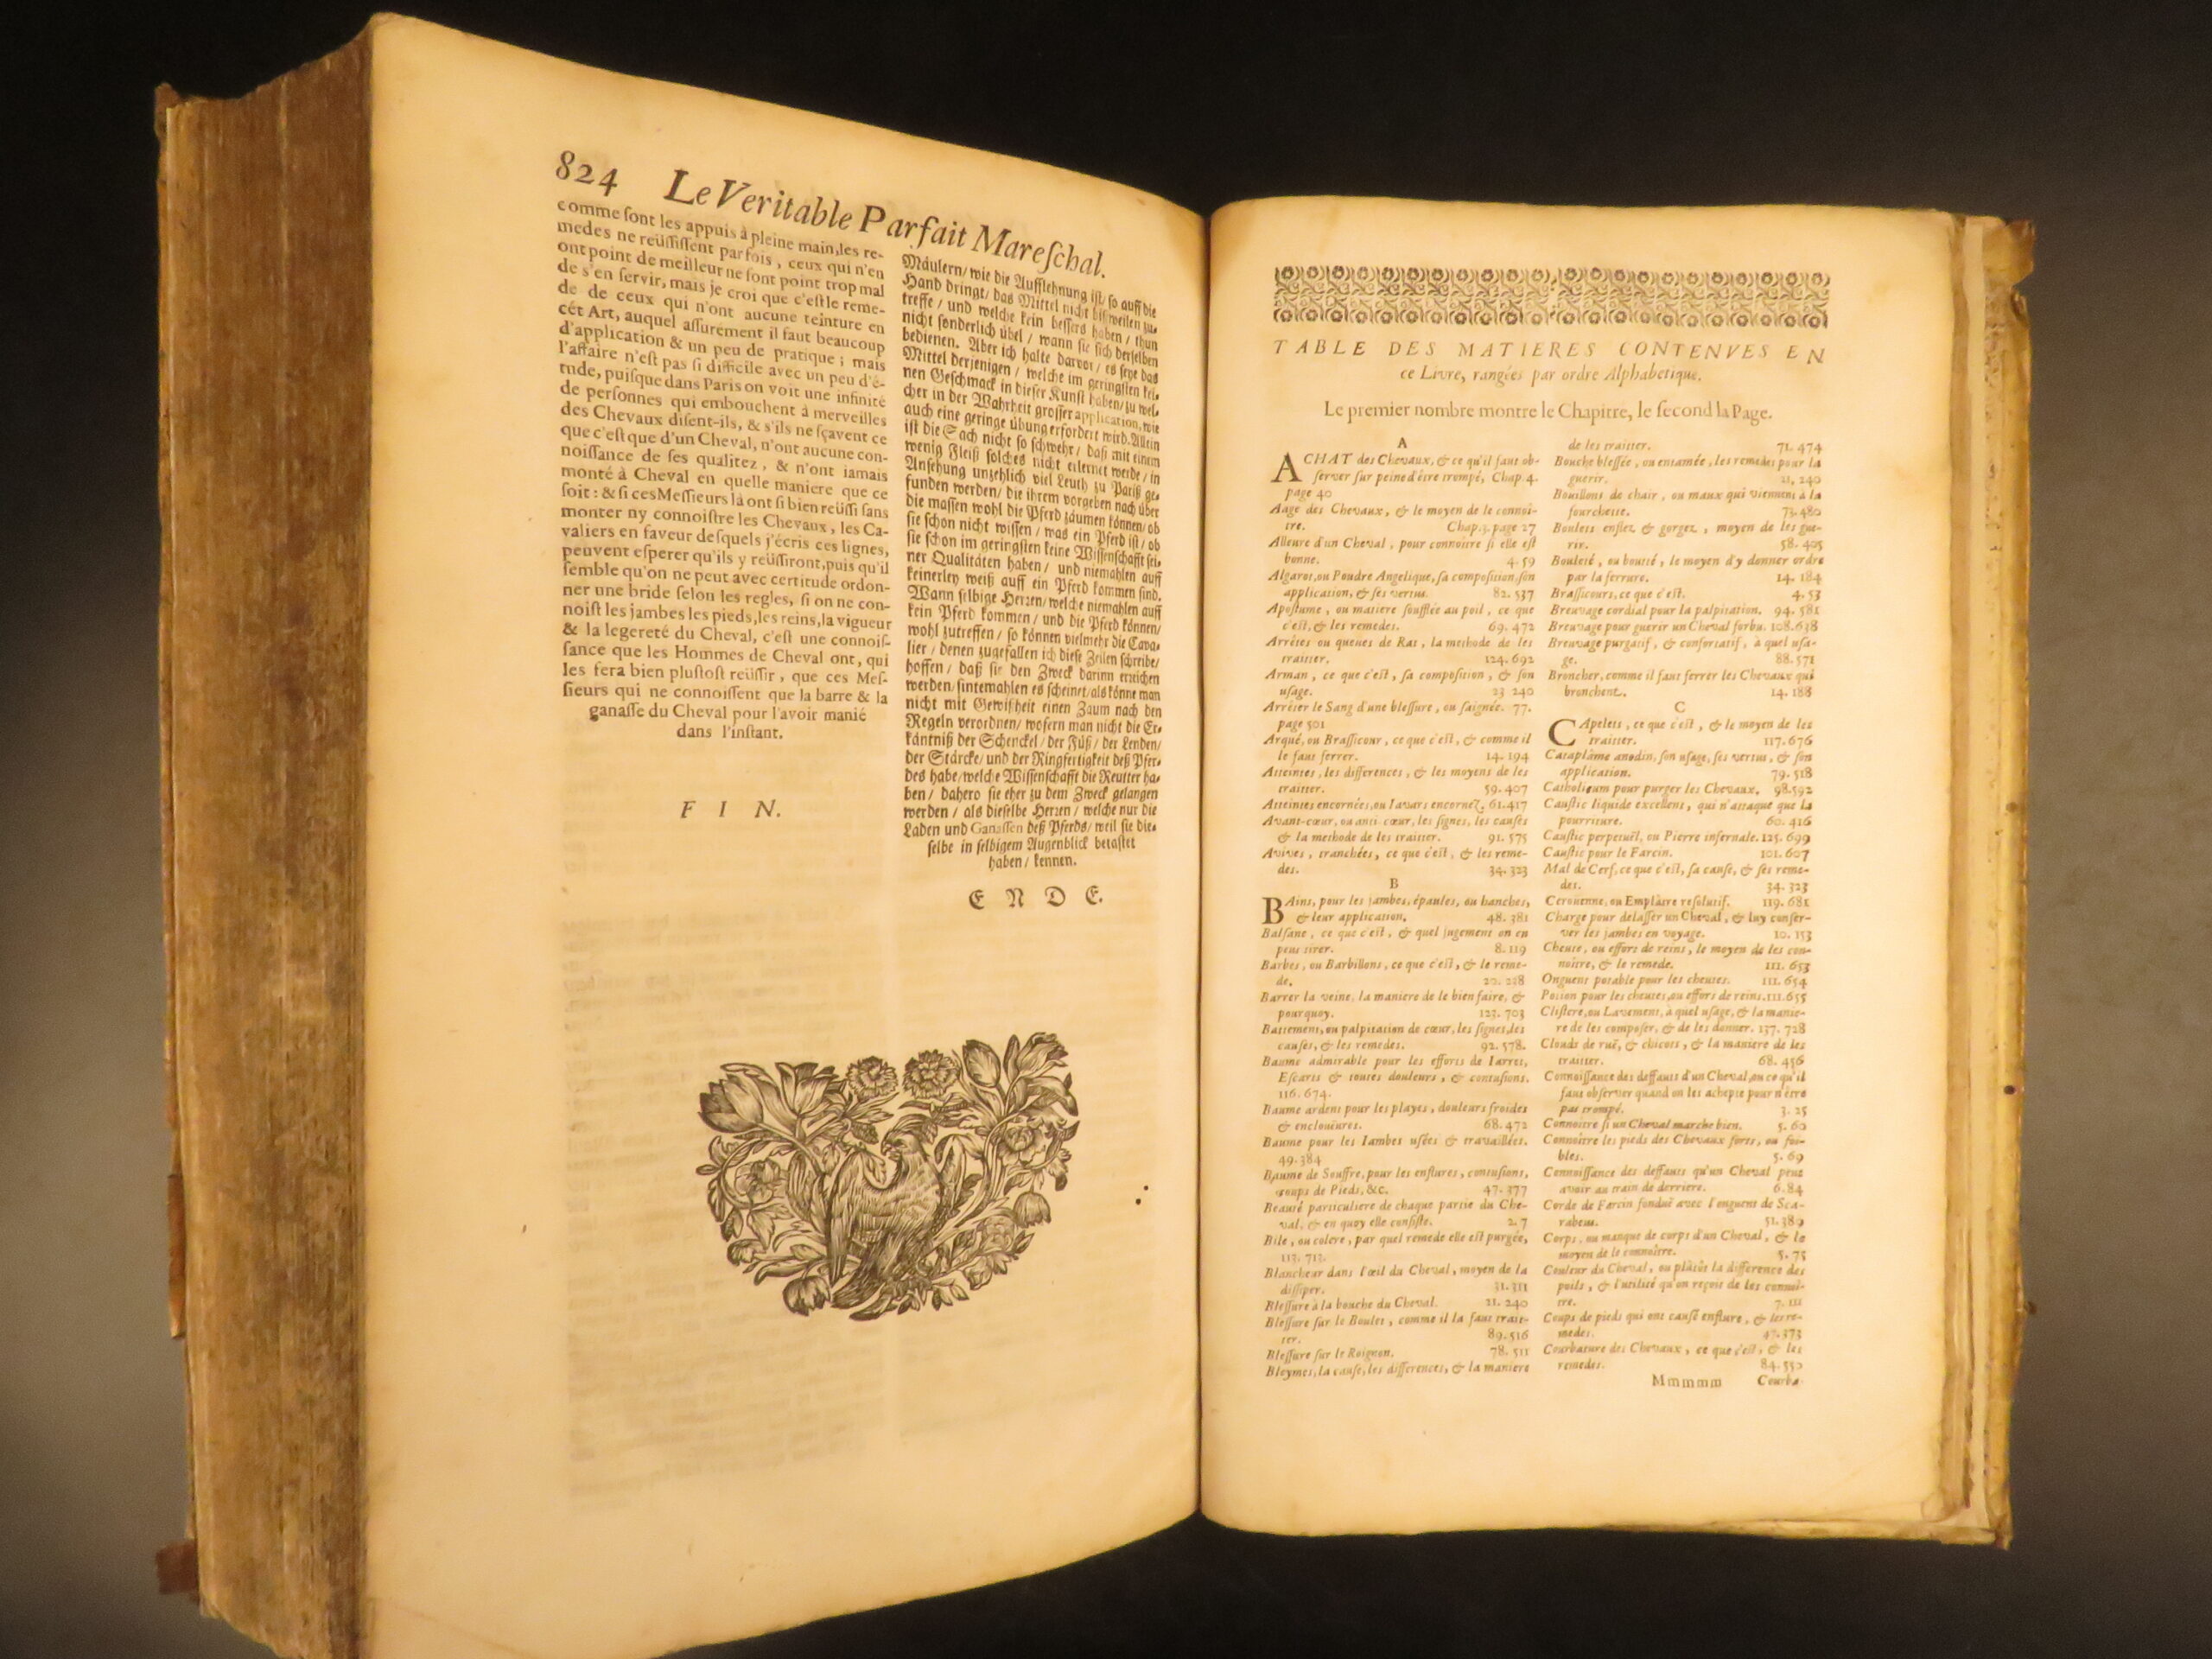 824 Le Veritable Parfait Mareſchal.
comme ſont les appuis à pleine main, les re-
medes ne reüſſiſſent parfois, ceux qui n'en
ont point de meilleur ne ſont point trop mal
de s'en ſervir, mais je croi que c'eſt le reme-
de de ceux qui n'ont aucune teinture en
cét Art, auquel aſſurément il faut beaucoup
d'application & un peu de pratique; mais
l'affaire n'eſt pas ſi difficile avec un peu d'é-
tude, puiſque dans Paris on voit une infinité
de perſonnes qui embouchent à merveilles
des Chevaux diſent-ils, & s'ils ne ſçavent ce
que c'eſt que d'un Cheval, n'ont aucune con-
noiſſance de ſes qualitez, & n'ont iamais
monté à Cheval en quelle maniere que ce
ſoit: & ſi ces Meſſieurs là ont ſi bien reüſſi ſans
monter ny connoiſtre les Chevaux, les Ca-
valiers en faveur deſquels j'écris ces lignes,
peuvent eſperer qu'ils y reüſſiront, puis qu'il
ſemble qu'on ne peut avec certitude ordon-
ner une bride ſelon les regles, ſi on ne con-
noiſt les jambes les pieds, les reins, la vigueur
& la legereté du Cheval, c'eſt une connoiſ-
ſance que les Hommes de Cheval ont, qui
les fera bien pluſtoſt reüſſir, que ces Meſ-
ſieurs qui ne connoiſſent que la barre & la
ganaſſe du Cheval pour l'avoir manié
dans l'inſtant.
F I N.
Mäulern/ wie die Aufflehnung iſt/ ſo auff die
Hand dringt/ das Mittel nicht bißweilen zu-
treffe / und welche kein beſſers haben / thun
nicht ſonderlich übel / wann ſie ſich derſelben
bedienen. Aber ich halte darvor/ es ſeye das
Mittel derjenigen / welche im geringſten kei-
nen Geſchmack in dieſer Kunſt haben/ zu wel-
cher in der Wahrheit groſſer application, wie
auch eine geringe übung erfordert wird. Allein
iſt die Sach nicht ſo ſchwehr/ daß mit einem
wenig Fleiß ſolches nicht erlernet werde/ in
Anſehung unzehlich viel Leuth zu Pariß ge-
funden werden/ die ihrem vorgeben nach über
die maſſen wohl die Pferd zäumen können/ ob
ſie ſchon nicht wiſſen / was ein Pferd iſt/ ob
ſie ſchon im geringſten keine Wiſſenſchafft ſei-
ner Qualitäten haben/ und niemahlen auff
keinerley weiß auff ein Pferd kommen ſind.
Wann ſelbige Herren/ welche niemahlen auff
kein Pferd kommen / und die Pferd können/
wohl zutreffen / ſo können vielmehr die Cava-
lier / denen zugefallen ich dieſe Zeilen ſchreibe/
hoffen / daß ſie den Zweck darinn erreichen
werden/ ſintemahlen es ſcheinet/ als könne man
nicht mit Gewißheit einen Zaum nach den
Regeln verordnen/ wofern man nicht die Er-
käntniß der Schenckel / der Füß / der Lenden/
der Stärcke/ und der Ringfertigkeit deß Pfer-
des habe/ welche Wiſſenſchafft die Reutter ha-
ben / dahero ſie eher zu dem Zweck gelangen
werden / als dieſelbe Herren / welche nur die
Laden und Ganaſſen deß Pferds/ weil ſie die-
ſelbe in ſelbigem Augenblick betaſtet
haben / kennen.
E N D E.
TABLE DES MATIERES CONTENVES EN
ce Livre, rangées par ordre Alphabetique.
Le premier nombre montre le Chapitre, le ſecond la Page.
A
ACHAT des Chevaux, & ce qu'il faut ob-
ſerver ſur peine d'être trompé, Chap. 4.
page 40
Aage des Chevaux, & le moyen de le connoî-
tre. Chap. 3. page 27
Alleure d'un Cheval, pour connoître ſi elle eſt
bonne. 4. 59
Algarot, ou Poudre Angelique, ſa compoſition, ſon
application, & ſes vertus. 82. 537
Apoſtume, ou matiere ſoufflée au poil, ce que
c'eſt, & les remedes. 69. 472
Arrêtes ou queues de Rat, la methode de les
traitter. 124. 692
Arman, ce que c'eſt, ſa compoſition, & ſon
uſage. 23 240
Arrêter le Sang d'une bleſſure, ou ſaignée. 77.
page 501
Arqué, ou Braſſicour, ce que c'eſt, & comme il
le faut ferrer. 14. 194
Atteintes, les differences, & les moyens de les
traitter. 59. 407
Atteintes encornées, ou Iavars encornez. 61. 417
Avant-cœur, ou anti-cœur, les ſignes, les cauſes
& la methode de les traitter. 91. 575
Avives, tranchées, ce que c'eſt, & les reme-
des. 34. 323
B
BAins, pour les jambes, épaules, ou hanches,
& leur application. 48. 381
Balſane, ce que c'eſt, & quel jugement on en
peut tirer. 8. 119
Barbes, ou Barbillons, ce que c'eſt, & le reme-
de. 20. 228
Barrer la veine, la maniere de le bien faire, &
pourquoy. 123. 703
Battement, ou palpitation de cœur, les ſignes, les
cauſes, & les remedes. 92. 578.
Baume admirable pour les efforts de Iarret,
Eſcarts & toutes douleurs, & contuſions.
116. 674.
Baume ardent pour les playes, douleurs froides
& encloüeures. 68. 472
Baume pour les Iambes uſées & travaillées.
49. 384
Baume de Souffre, pour les enflures, contuſions,
coups de Pieds, &c. 47. 377
Beauté particuliere de chaque partie du Che-
val, & en quoy elle conſiſte. 2. 7
Bile, ou colere, par quel remede elle eſt purgée,
113. 713.
Blancheur dans l'œil du Cheval, moyen de la
diſſiper. 31. 311
Bleſſure à la bouche du Cheval. 21. 240
Bleſſure ſur le Boulet, comme il la faut trait-
ter. 89. 516
Bleſſure ſur le Roignon. 78. 511
Bleymes, la cauſe, les differences, & la maniere
de les traitter. 71. 474
Bouche bleſſée, ou entamée, les remedes pour la
guerir. 21. 240
Bouillons de chair, ou maux qui viennent à la
fourchette. 73. 480
Boulets enflez & gorgez, moyen de les gue-
rir. 58. 405
Bouleté, ou bouté, le moyen d'y donner ordre
par la ferrure. 14. 184
Braſſicourt, ce que c'eſt. 4. 53
Breuvage cordial pour la palpitation. 94. 581
Breuvage pour guerir un Cheval forbu. 108. 638
Breuvage purgatif, & confortatif, à quel uſa-
ge. 88. 571
Broncher, comme il faut ferrer les Chevaux qui
bronchent. 14. 188
C
CApelets, ce que c'eſt, & le moyen de les
traitter. 117. 676
Cataplâme anodin, ſon uſage, ſes vertus, & ſon
application. 79. 518
Catholicum pour purger les Chevaux. 98. 592
Cauſtic liquide excellent, qui n'attaque que la
pourriture. 60. 416
Cauſtic perpetuël, ou Pierre infernale. 125. 699
Cauſtic pour le Farcin. 101. 607
Mal de Cerf, ce que c'eſt, ſa cauſe, & ſes reme-
des. 34. 323
Ceroüenne, ou Emplâtre reſolutif. 119. 681
Charge pour delaſſer un Cheval, & luy conſer-
ver les jambes en voyage. 10. 153
Cheute, ou effort de reins, le moyen de les con-
noître, & le remede. 111. 653
Onguent potable pour les cheutes. 111. 654
Potion pour les cheutes, ou efforts de reins. 111. 655
Cliſtere, ou Lavement, à quel uſage, & la manie-
re de les compoſer, & de les donner. 137. 728
Clouds de ruë, & chicots, & la maniere de les
traitter. 68. 456
Connoiſſance des deffauts d'un Cheval, ou ce qu'il
faut obſerver quand on les achepte pour n'être
pas trompé. 3. 25
Connoître ſi un Cheval marche bien. 5. 60
Connoître les pieds des Chevaux forts, ou foi-
bles. 5. 69
Connoiſſance des deffauts qu'un Cheval peut
avoir au train de derriere. 6. 84
Corde de Farcin fonduë avec l'onguent de Sca-
rabeus. 51. 389
Corps, ou manque de corps d'un Cheval, & le
moyen de le connoître. 5. 75
Couleur du Cheval, ou plûtôt la difference des
poils, & l'utilité qu'on reçoit de les connoî-
tre. 7. 111
Coups de pieds qui ont cauſé enflure, & les re-
medes. 47. 373
Courbature des Chevaux, ce que c'eſt, & les
remedes. 84. 550
Mmmmm Courba-